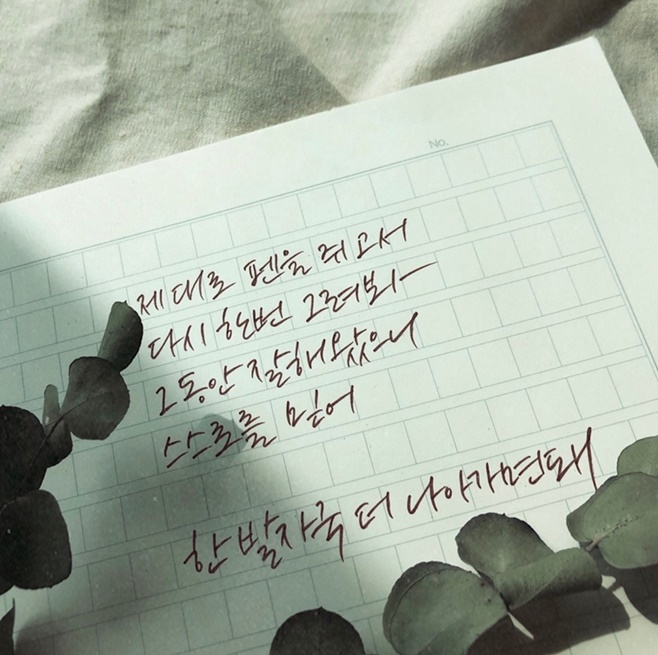 No.
제대로 펜을 쥐고서
다시 한번 그려봐
그동안 잘해왔으니
스스로를 믿어
한 발자국 더 나아가면돼